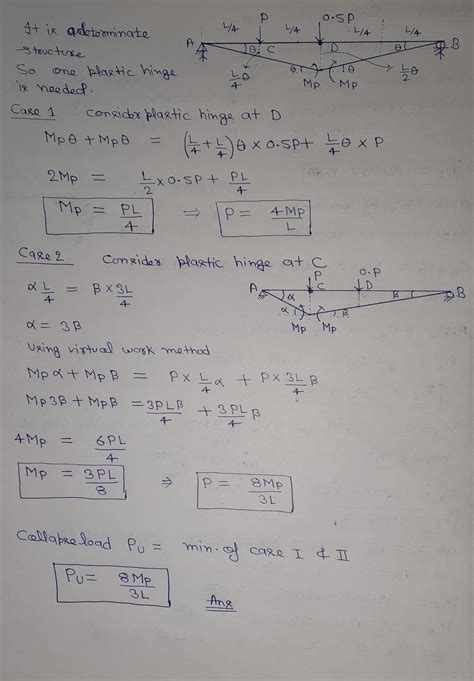 It is a determinate
structure
So one plastic hinge
is needed.
L/4 P L/4 0.5P L/4 L/4
A θ C D θ B
L/4 θ θ θ L/2 θ
Mp Mp
Case 1 Consider plastic hinge at D
Mpθ + Mpθ = (L/4 + L/4) θ × 0.5P + L/4 θ × P
2Mp = L/2 × 0.5P + PL/4
Mp = PL/4 ⇒ P = 4Mp/L
Case 2 Consider plastic hinge at C
P 0.P
A α C D β B
α β
Mp Mp
α L/4 = β × 3L/4
α = 3β
Using virtual work method
Mpα + Mpβ = P × L/4 α + P × 3L/4 β
Mp3β + Mpβ = 3PLβ/4 + 3PL/4 β
4Mp = 6PL/4
Mp = 3PL/8 ⇒ P = 8Mp/3L
Collapse load Pu = min. of case I & II
Pu = 8Mp/3L Ans